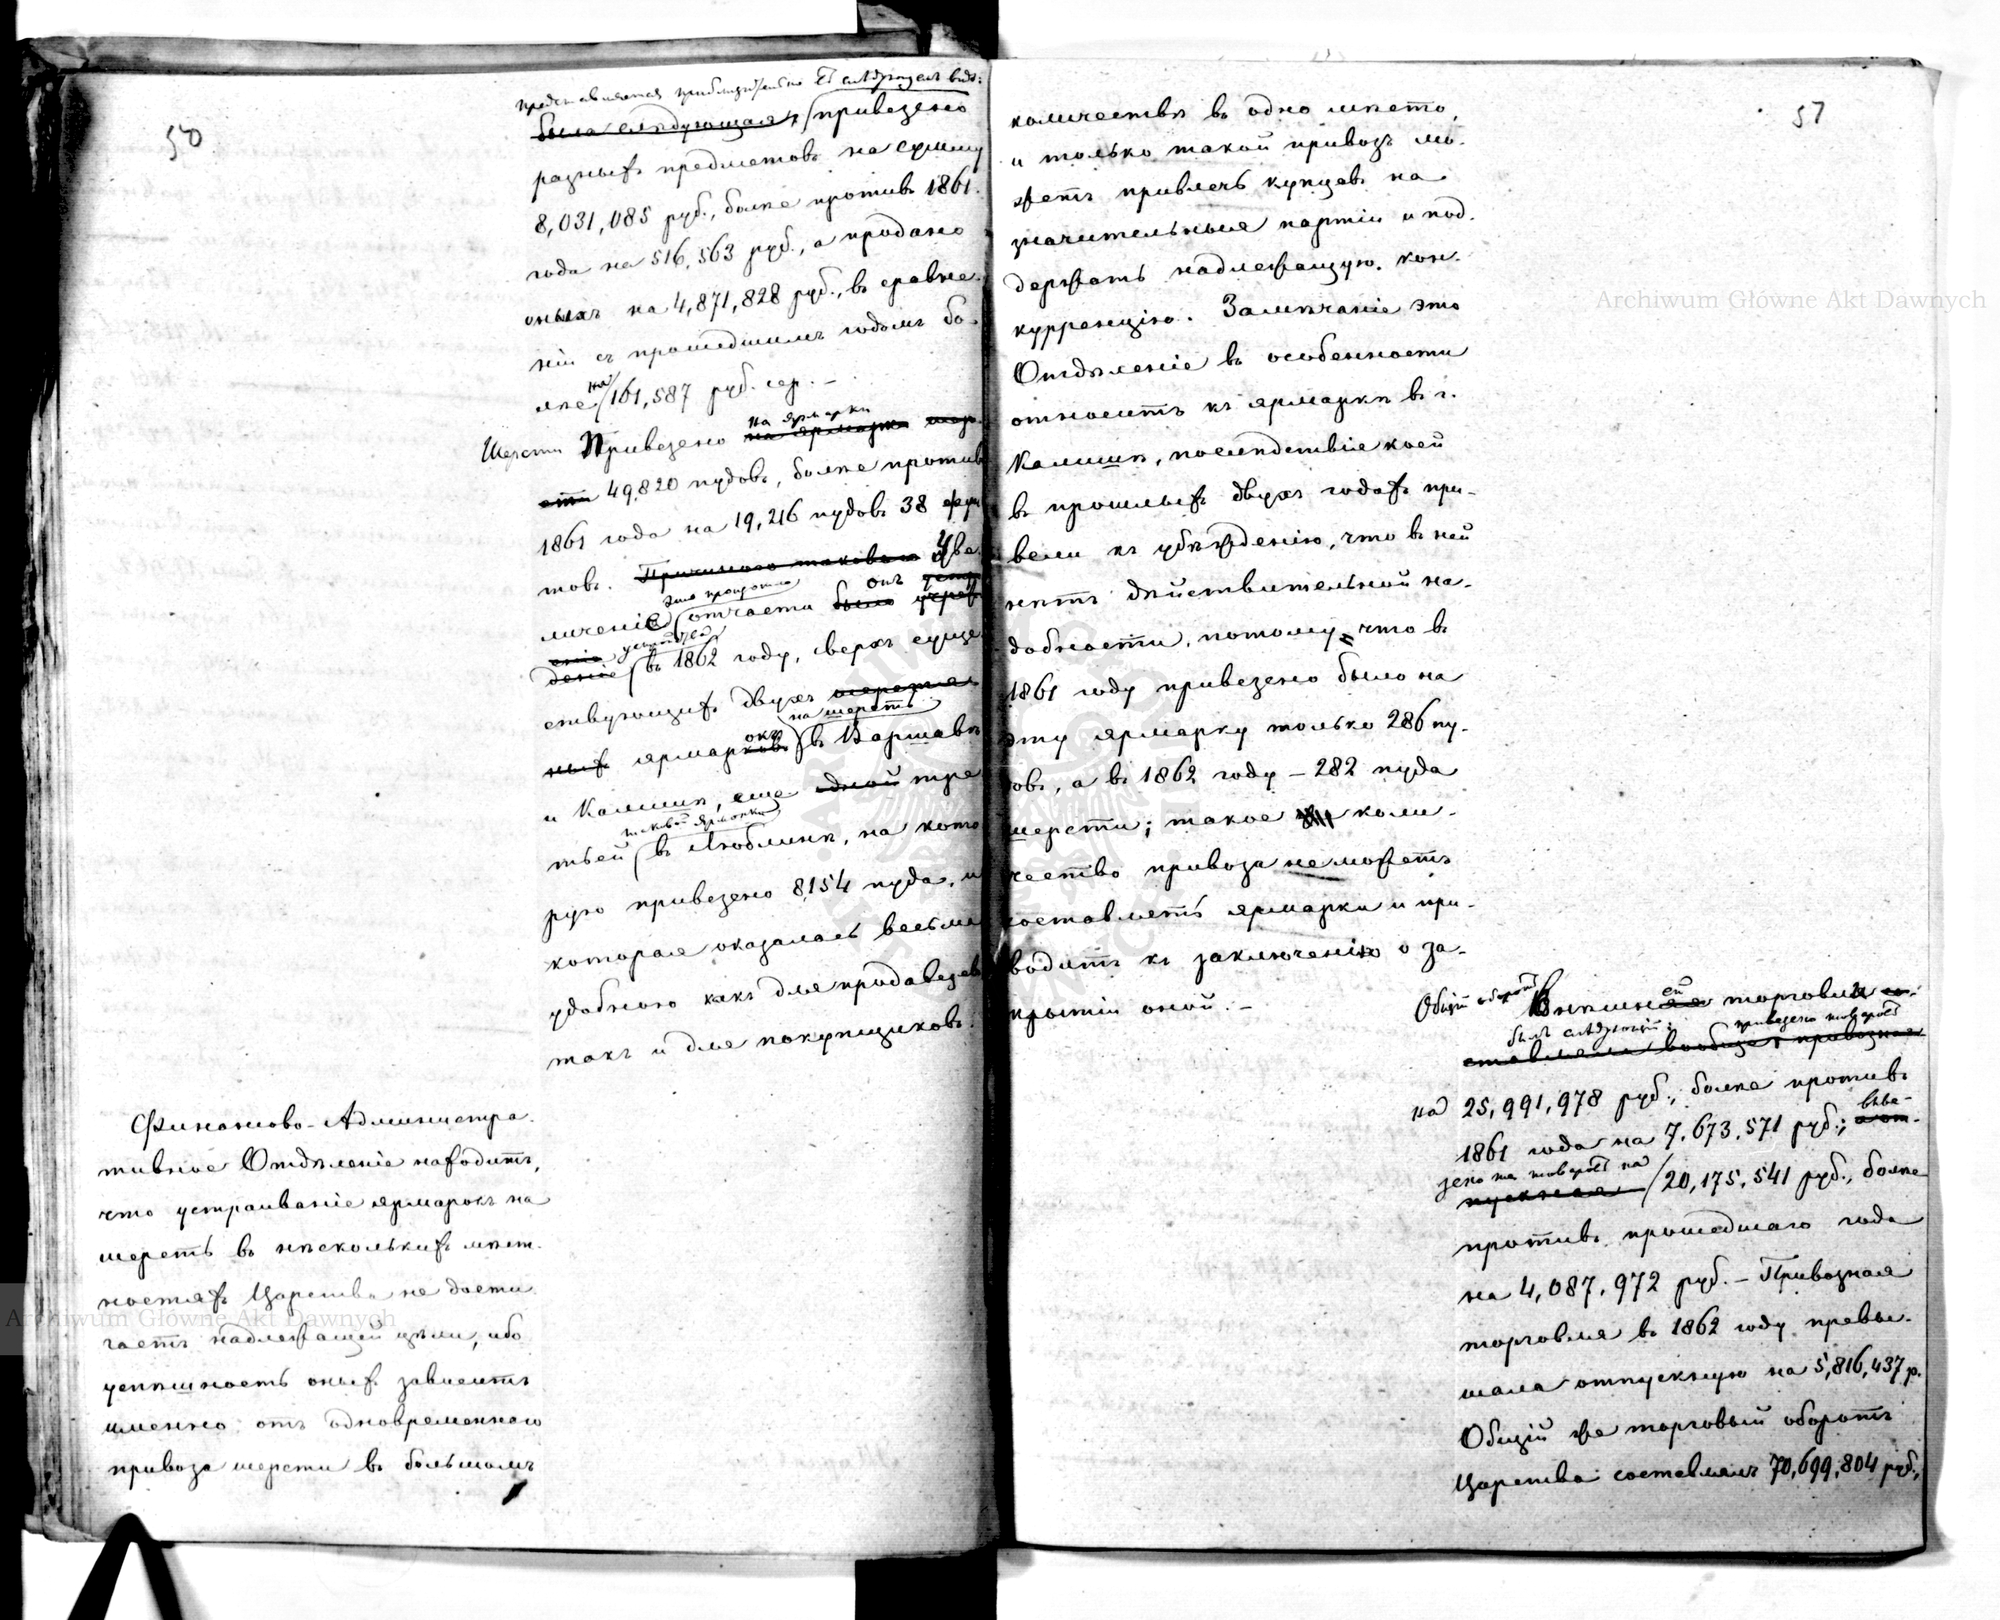 50
представляется приблизительно въ слѣдующемъ видѣ:
была слѣдующая, приведено
разныхъ предметовъ на сумму
8,031,085 руб., болѣе противъ 1861.
года на 516,563 руб., а продано
оныхъ на 4,871,828 руб., въ сравне-
ніи съ прошедшимъ годомъ бо-
лѣе на 161,587 руб. сер. –
на ярмарки
Шерсти Приведено на ярмарка шер-
сти 49,820 пудовъ, болѣе противъ
1861 года на 19,216 пудовъ 38 фун
товъ. Причиною таковаго Уве
личеніе это произошло отчасти было отъ
учреж
дение устройства въ 1862 году, сверхъ суще
ствующихъ двухъ шерстя
ныхъ ярмарокъ на шерсть въ Варшавѣ
и Калишѣ, еще одной тре
тьей таковой ярмарки въ Люблинѣ, на кото
рую привезено 8,154 пуда, и
которая оказалась весьма
удобною какъ для продавцевъ
такъ и для покупщиковъ.
Финансово-Администра-
тивное Отдѣленіе находитъ,
что устраиваніе ярмарокъ на
шерсть въ нѣсколькихъ мѣст-
ностяхъ Царства не дости
гаетъ надлежащей цѣли, ибо
успѣшность оныхъ зависитъ
именно отъ одновременнаго
привоза шерсти въ большомъ
57
количествѣ въ одно мѣсто,
и только такой привозъ мо-
жетъ привлечь купцевъ на
значительныя партіи и под-
держать надлежащую кон-
курренцію. Замѣчаніе это
Отдѣленіе въ особенности
относитъ къ ярмаркѣ въ г.
Калишѣ, послѣдствіе коей
въ прошлыхъ двухъ годахъ при-
вели къ убѣжденію, что въ ней
нѣтъ дѣйствительной на-
добности, потому что въ
1861 году привезено было на
эту ярмарку только 286 пу-
довъ, а въ 1862 году – 282 пуда
шерсти; такое коли-
чество привоза не можетъ
составлять ярмарки и при-
водитъ къ заключенію о за-
крытіи оной. –
Общій оборотъ Внѣшней торговли со-
былъ слѣдующій: привезено товаровъ
ставляли вообще: привозная
на 25,991,978 руб., болѣе противъ
1861 года на 7,673,571 руб.; выве-
а от-
зено же товаровъ на
пускная 20,175,541 руб., болѣе
противъ прошедшаго года
на 4,087,972 руб. – Привозная
торговля въ 1862 году превы-
шала отпускную на 5,816,437 р.
Общій же торговый оборотъ
Царства составлялъ 70,699,804 руб.,
Archiwum Główne Akt Dawnych
Archiwum Główne Akt Dawnych